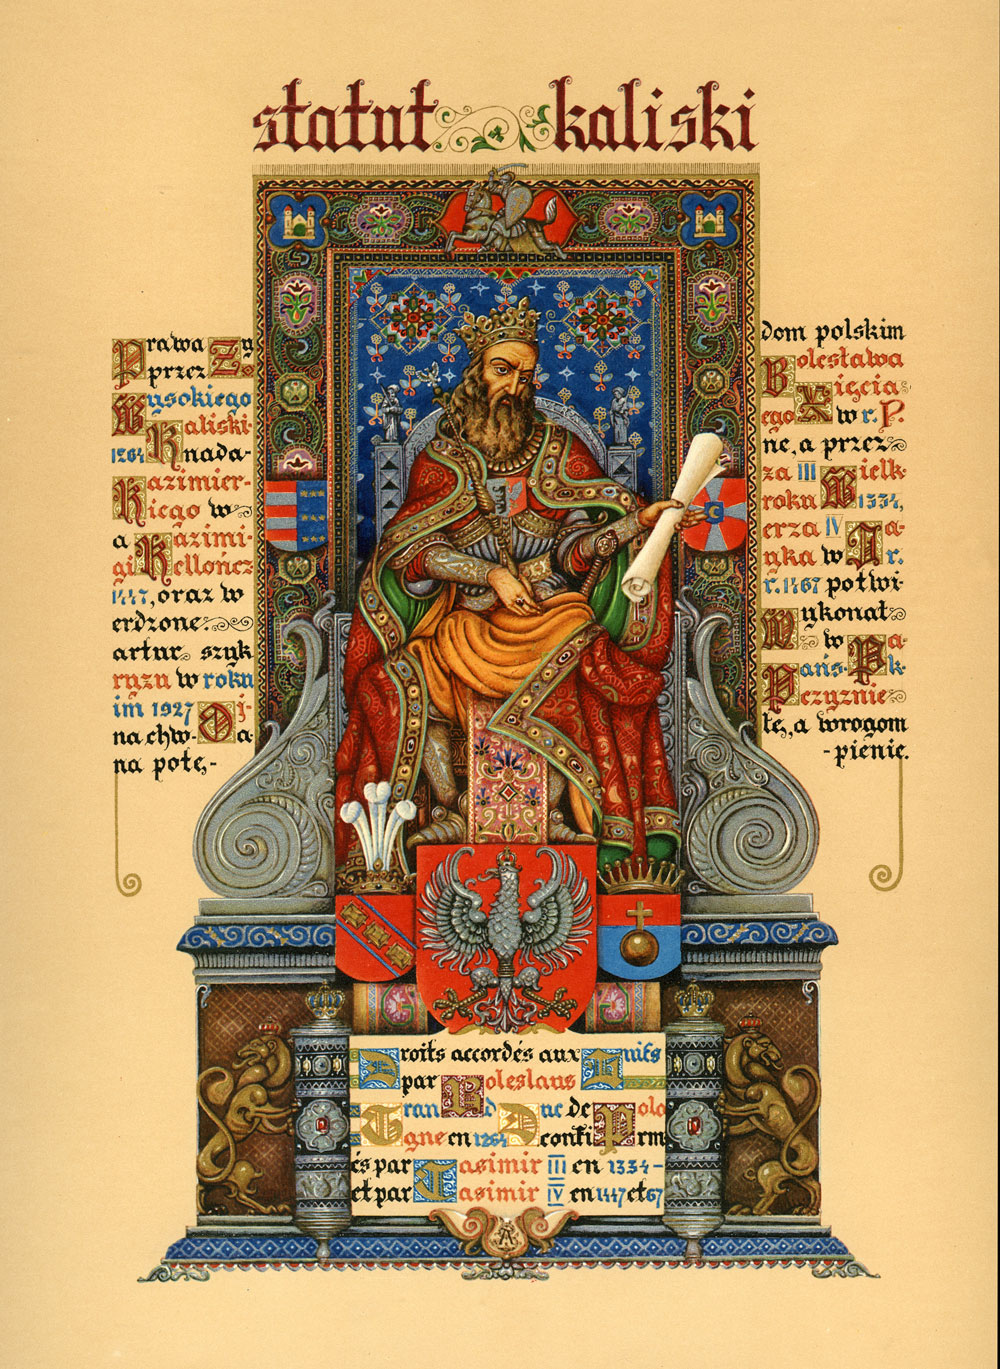 statut kaliski
Prawa Zy dom polskim
przez Bolesława
Wysokiego Xięcia
Kaliski- ego w r. P.
1264 nada- ne, a przez
Kazimier- za III Wielk-
Kiego w roku 1334,
a Kazimi- erza IV Ja-
giellończ yka w r.
1447, oraz w r. 1467 potwi-
erdzone. Wykonał
artur szyk w Pa-
ryzu w roku Pańs-k-
im 1927 Oj- czyznie
na chwa- łę, a wrogom
na potę,- -pienie.
Droits accordés aux Juifs
par Boleslaus
Grand Duc de Polo
gne en 1264 confirm
és par Casimir III en 1334-
et par Casimir IV en 1447 et 67